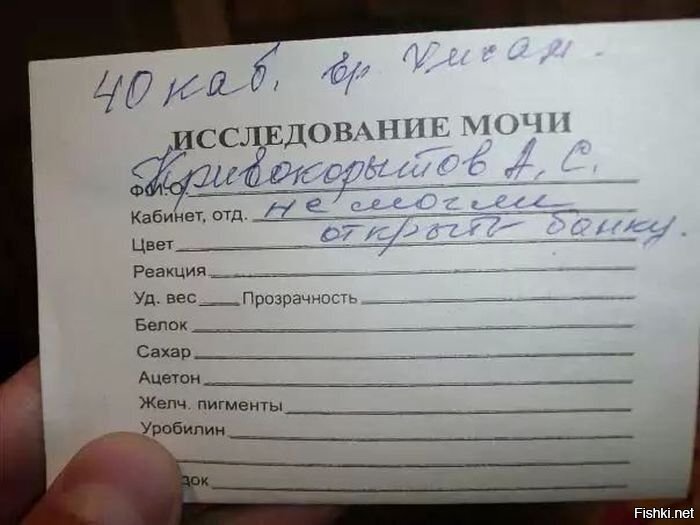 40 каб. вр.
ИССЛЕДОВАНИЕ МОЧИ
Кривокорытов А. С.
Кабинет, отд. не могли
Цвет открыть банку.
Реакция
Уд. вес Прозрачность
Белок
Сахар
Ацетон
Желч. пигменты
Уробилин
Fishki.net